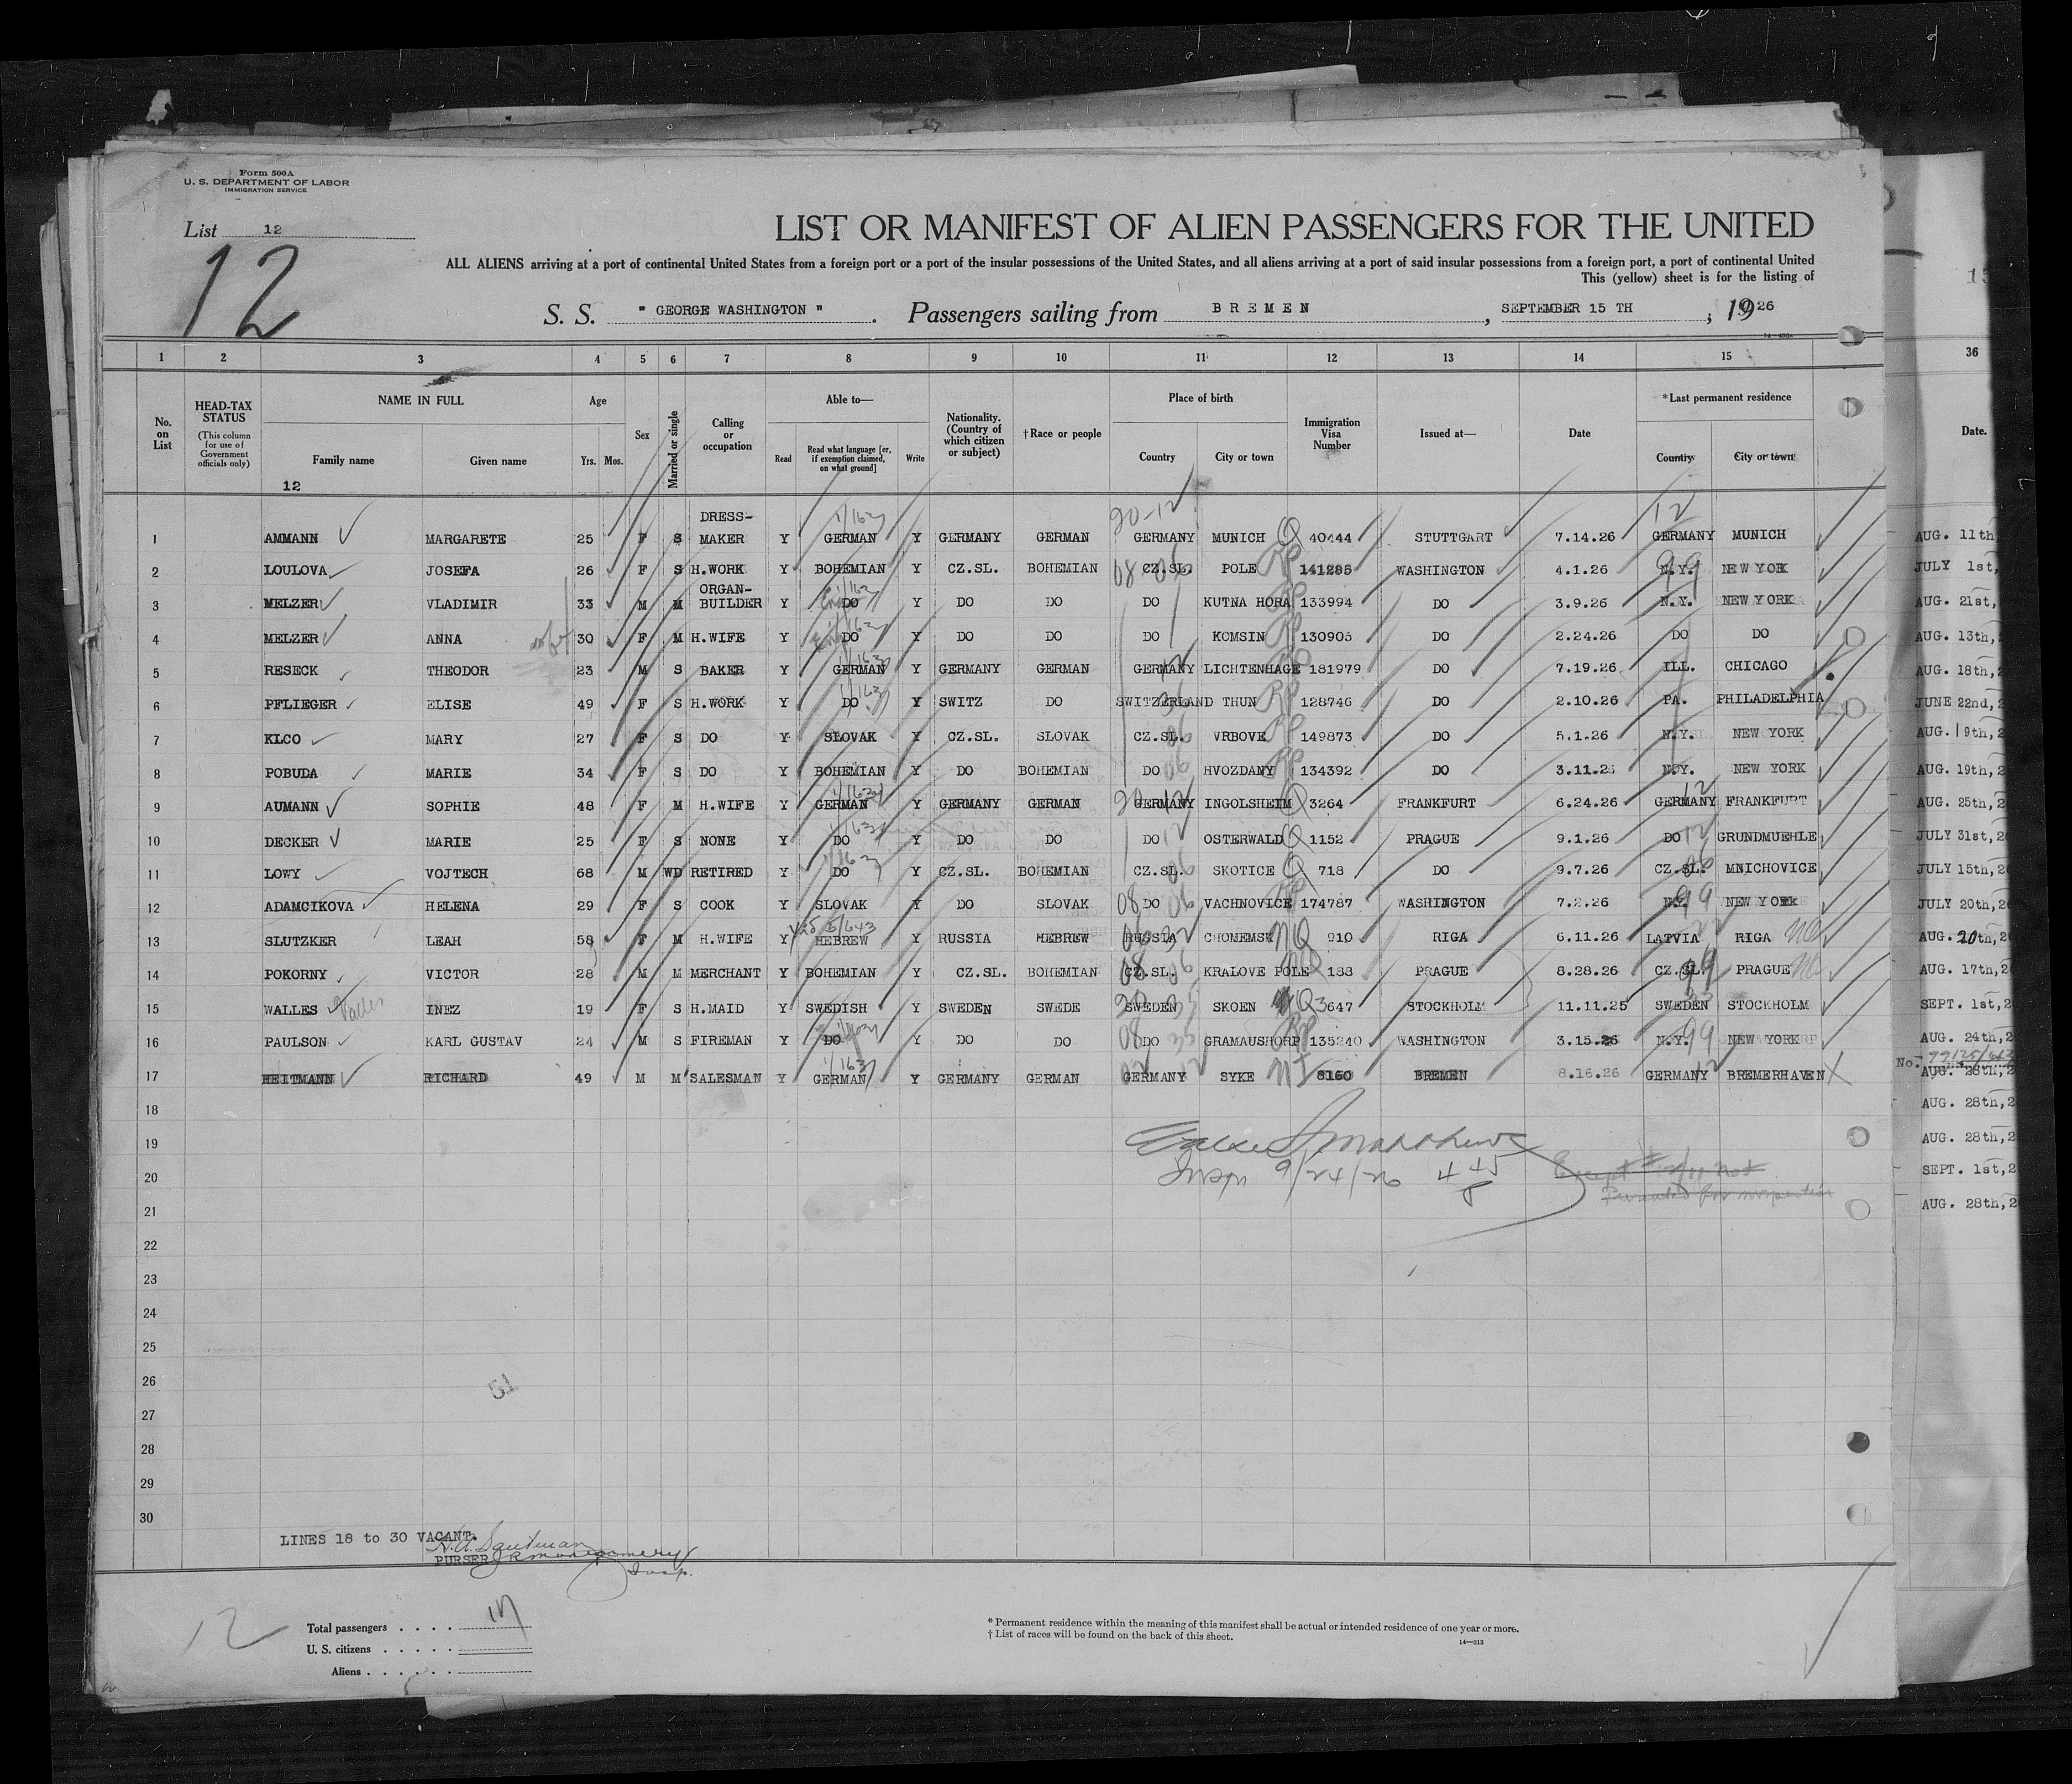 Form 500A
U. S. DEPARTMENT OF LABOR
IMMIGRATION SERVICE
List 12
12
LIST OR MANIFEST OF ALIEN PASSENGERS FOR THE UNITED
ALL ALIENS arriving at a port of continental United States from a foreign port or a port of the insular possessions of the United States, and all aliens arriving at a port of said insular possessions from a foreign port, a port of continental United
This (yellow) sheet is for the listing of
S. S. " GEORGE WASHINGTON " . Passengers sailing from BREMEN , SEPTEMBER 15 TH , 1926
1 2 3 4 5 6 7 8 9 10 11 12 13 14 15 36
No. on List HEAD-TAX STATUS (This column for use of Government officials only) NAME IN FULL Family name Given name Age Yrs. Mos. Sex Married or single Calling or occupation Able to— Read Read what language [or, if exemption claimed, on what ground] Write Nationality. (Country of which citizen or subject) †Race or people Place of birth Country City or town Immigration Visa Number Issued at— Date *Last permanent residence Country City or town Date.
12
1 AMMANN MARGARETE 25 F S DRESS-MAKER Y GERMAN Y GERMANY GERMAN GERMANY MUNICH Q 40444 STUTTGART 7.14.26 GERMANY MUNICH AUG. 11th
2 LOULOVA JOSEFA 26 F S H.WORK Y BOHEMIAN Y CZ.SL. BOHEMIAN CZ.SL. POLE 141285 WASHINGTON 4.1.26 N.Y. NEW YORK JULY 1st,
3 MELZER VLADIMIR 33 M M ORGAN-BUILDER Y DO Y DO DO DO KUTNA HORA 133994 DO 3.9.26 N.Y. NEW YORK AUG. 21st,
4 MELZER ANNA 30 F M H.WIFE Y DO Y DO DO DO KOMSIN 130905 DO 2.24.26 DO DO AUG. 13th,
5 RESECK THEODOR 23 M S BAKER Y GERMAN Y GERMANY GERMAN GERMANY LICHTENHAGE 181979 DO 7.19.26 ILL. CHICAGO AUG. 18th,
6 PFLIEGER ELISE 49 F S H.WORK Y DO Y SWITZ DO SWITZERLAND THUN 128746 DO 2.10.26 PA. PHILADELPHIA JUNE 22nd,
7 KLCO MARY 27 F S DO Y SLOVAK Y CZ.SL. SLOVAK CZ.SL. VRBOVE 149873 DO 5.1.26 N.Y. NEW YORK AUG. 19th,
8 POBUDA MARIE 34 F S DO Y BOHEMIAN Y DO BOHEMIAN DO HVOZDANY 134392 DO 3.11.26 N.Y. NEW YORK AUG. 19th,
9 AUMANN SOPHIE 48 F M H.WIFE Y GERMAN Y GERMANY GERMAN GERMANY INGOLSHEIM Q 3264 FRANKFURT 6.24.26 GERMANY FRANKFURT AUG. 25th,
10 DECKER MARIE 25 F S NONE Y DO Y DO DO DO OSTERWALD Q 1152 PRAGUE 9.1.26 DO GRUNDMUEHLE JULY 31st,
11 LOWY VOJTECH 68 M WD RETIRED Y DO Y CZ.SL. BOHEMIAN CZ.SL. SKOTICE Q 718 DO 9.7.26 CZ.SL. MNICHOVICE JULY 15th,
12 ADAMCIKOVA HELENA 29 F S COOK Y SLOVAK Y DO SLOVAK DO VACHNOVICE 174787 WASHINGTON 7.2.26 N.Y. NEW YORK JULY 20th,
13 SLUTZKER LEAH 58 F M H.WIFE Y HEBREW Y RUSSIA HEBREW RUSSIA CHOMEMSK NQ 910 RIGA 6.11.26 LATVIA RIGA AUG. 20th,
14 POKORNY VICTOR 28 M M MERCHANT Y BOHEMIAN Y CZ.SL. BOHEMIAN CZ.SL. KRALOVE POLE 188 PRAGUE 8.28.26 CZ.SL. PRAGUE AUG. 17th,
15 WALLES INEZ 19 F S H.MAID Y SWEDISH Y SWEDEN SWEDE SWEDEN SKOEN Q 3647 STOCKHOLM 11.11.25 SWEDEN STOCKHOLM SEPT. 1st,
16 PAULSON KARL GUSTAV 24 M S FIREMAN Y DO Y DO DO DO GRAMAUSHORP 135240 WASHINGTON 3.15.26 N.Y. NEW YORK AUG. 24th,
17 HEITMANN RICHARD 49 M M SALESMAN Y GERMAN Y GERMANY GERMAN GERMANY SYKE 8160 BREMEN 8.16.26 GERMANY BREMERHAVEN AUG. 28th,
18 AUG. 28th,
19 AUG. 28th,
20 SEPT. 1st,
Insp 9/24/26
21 AUG. 28th,
22
23
24
25
26
51
27
28
29
30
LINES 18 to 30 VACANT.
PURSER Montgomery
Insp.
12
Total passengers . . . . 17
U. S. citizens . . . . .
Aliens . . . . . .
* Permanent residence within the meaning of this manifest shall be actual or intended residence of one year or more.
† List of races will be found on the back of this sheet.
14—213